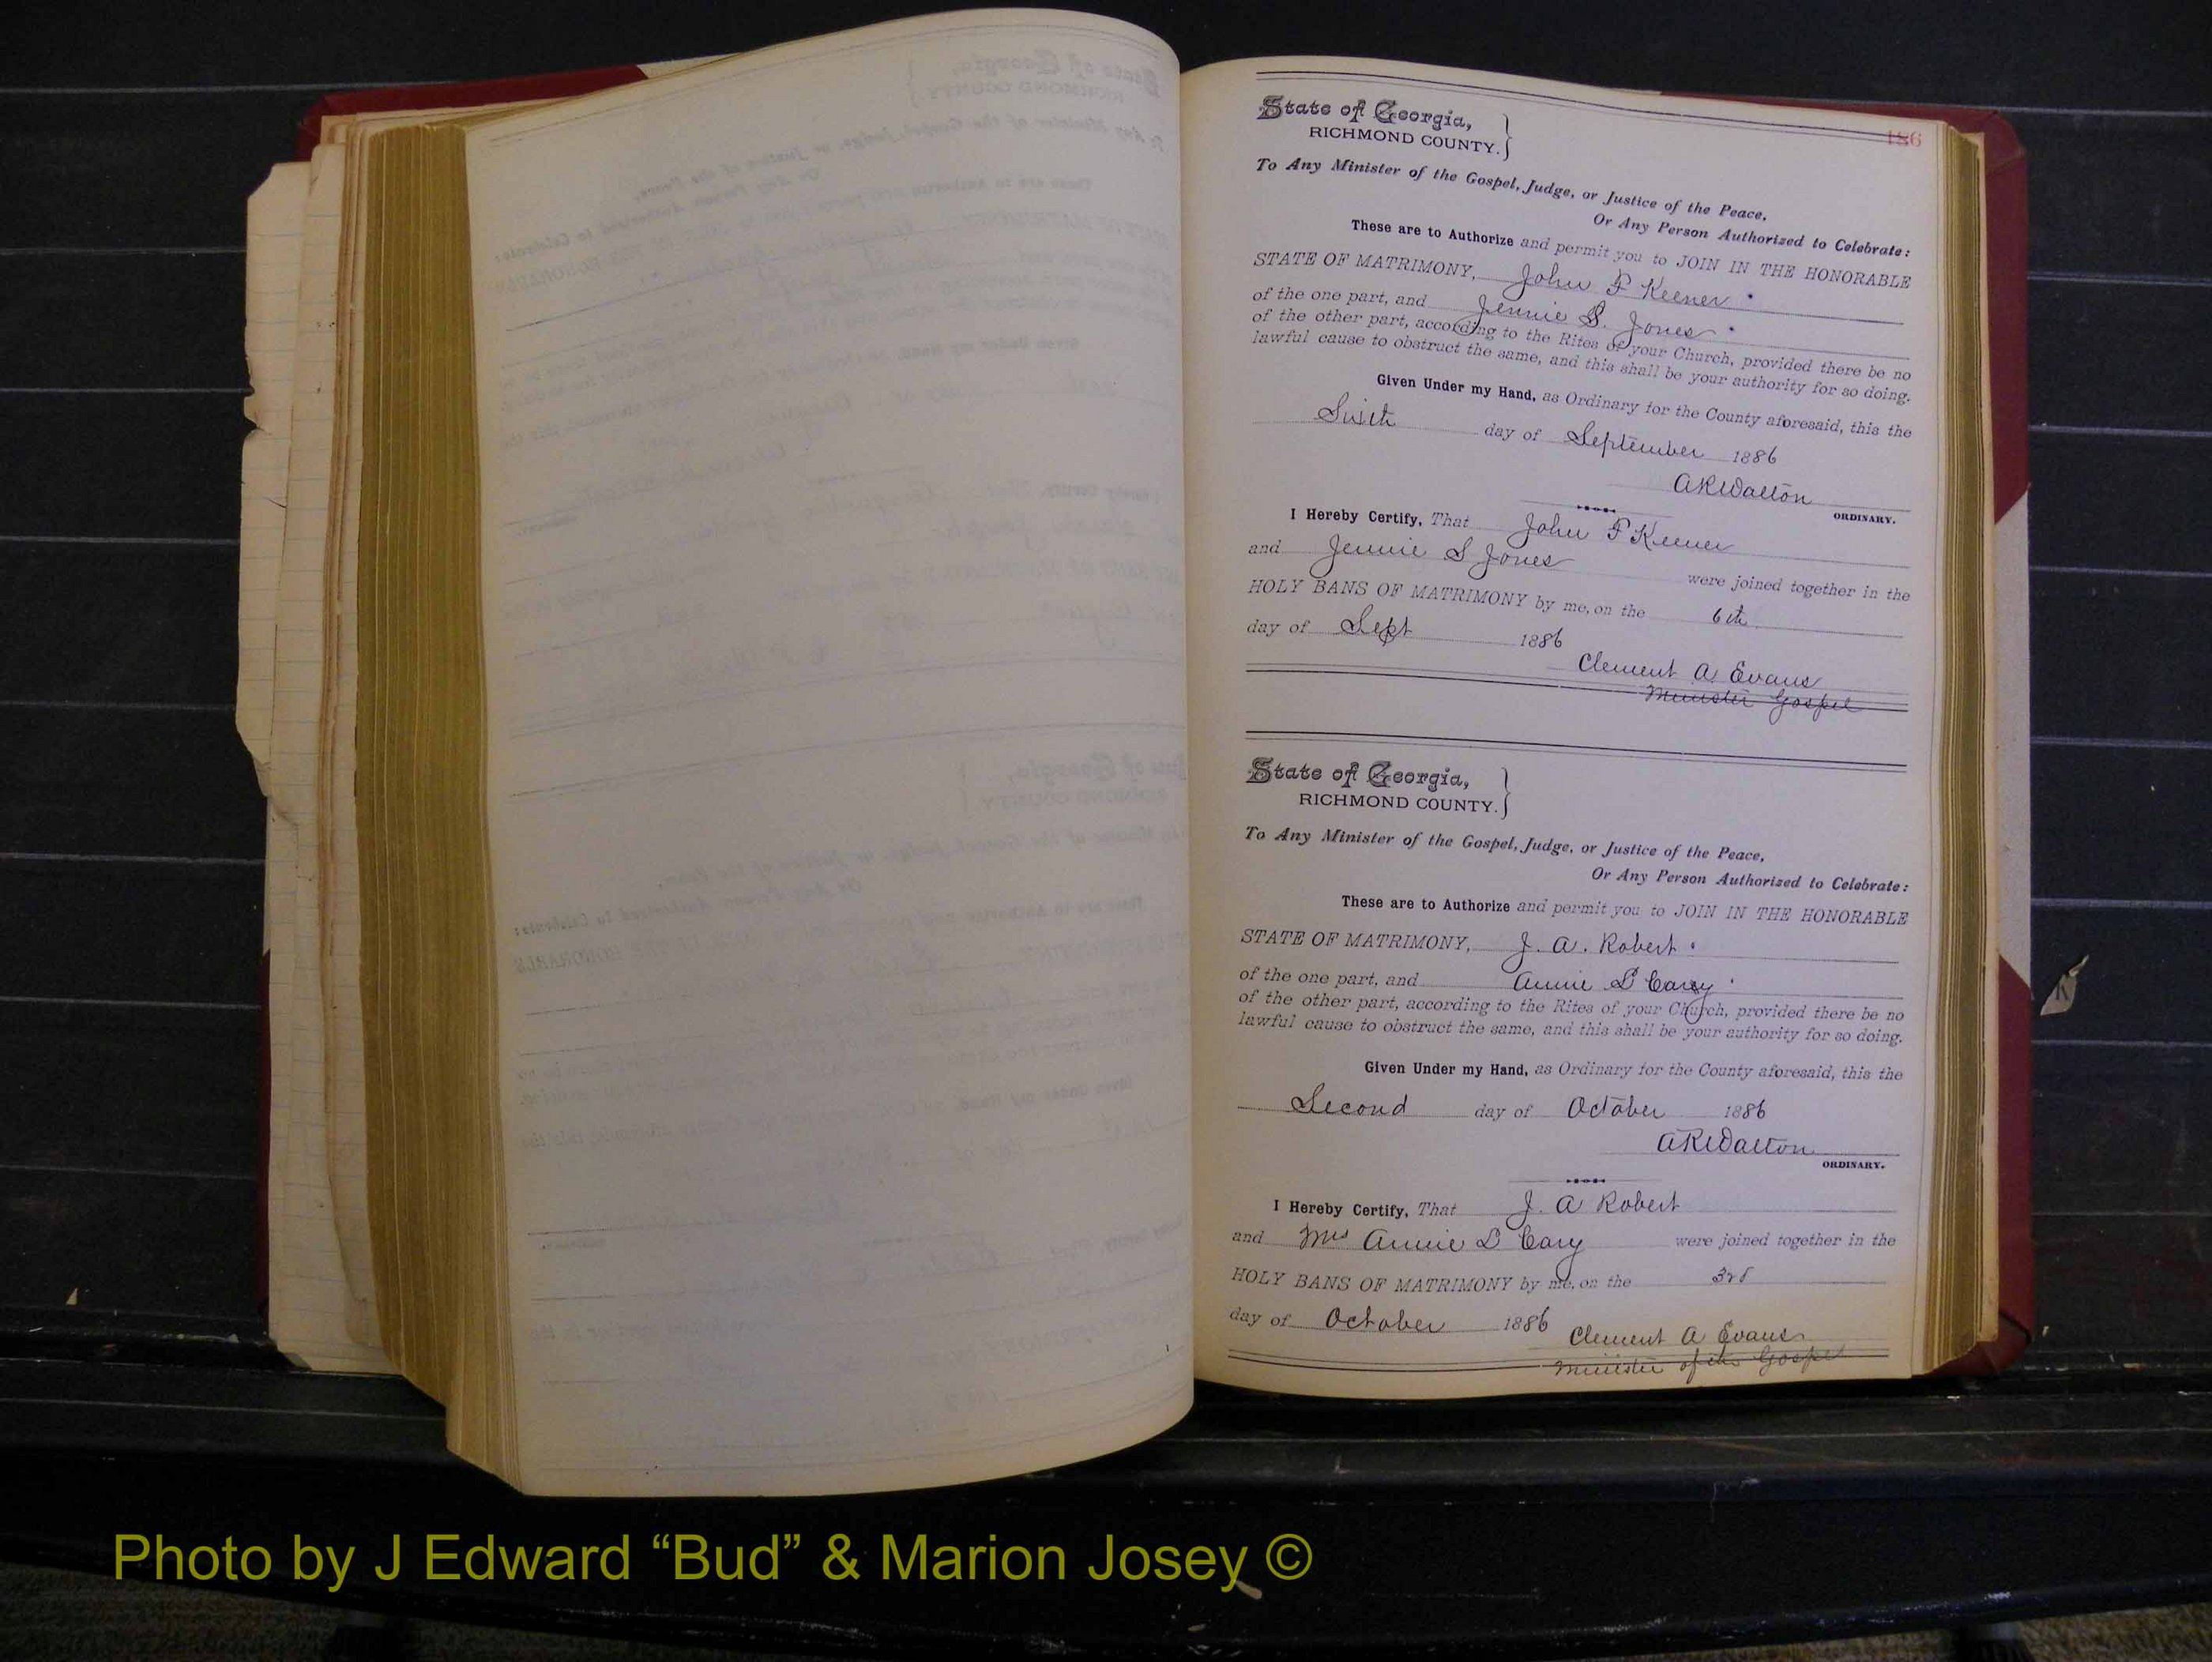 186
State of Georgia,
RICHMOND COUNTY.
To Any Minister of the Gospel, Judge, or Justice of the Peace,
Or Any Person Authorized to Celebrate:
These are to Authorize and permit you to JOIN IN THE HONORABLE
STATE OF MATRIMONY, John F Keener
of the one part, and Jennie S. Jones
of the other part, according to the Rites of your Church, provided there be no
lawful cause to obstruct the same, and this shall be your authority for so doing.
Given Under my Hand, as Ordinary for the County aforesaid, this the
Sixth day of September 1886
A R Walton
ORDINARY.
I Hereby Certify, That John F Keener
and Jennie S Jones were joined together in the
HOLY BANS OF MATRIMONY by me, on the 6th
day of Sept 1886
Clement A Evans
Minister Gospel
State of Georgia,
RICHMOND COUNTY.
To Any Minister of the Gospel, Judge, or Justice of the Peace,
Or Any Person Authorized to Celebrate:
These are to Authorize and permit you to JOIN IN THE HONORABLE
STATE OF MATRIMONY, J. A. Robert
of the one part, and Annie D Cary
of the other part, according to the Rites of your Church, provided there be no
lawful cause to obstruct the same, and this shall be your authority for so doing.
Given Under my Hand, as Ordinary for the County aforesaid, this the
Second day of October 1886
A R Walton
ORDINARY.
I Hereby Certify, That J. A Robert
and Mrs Annie D Cary were joined together in the
HOLY BANS OF MATRIMONY by me, on the 3rd
day of October 1886
Clement A Evans
Minister of the Gospel
Photo by J Edward “Bud” & Marion Josey ©